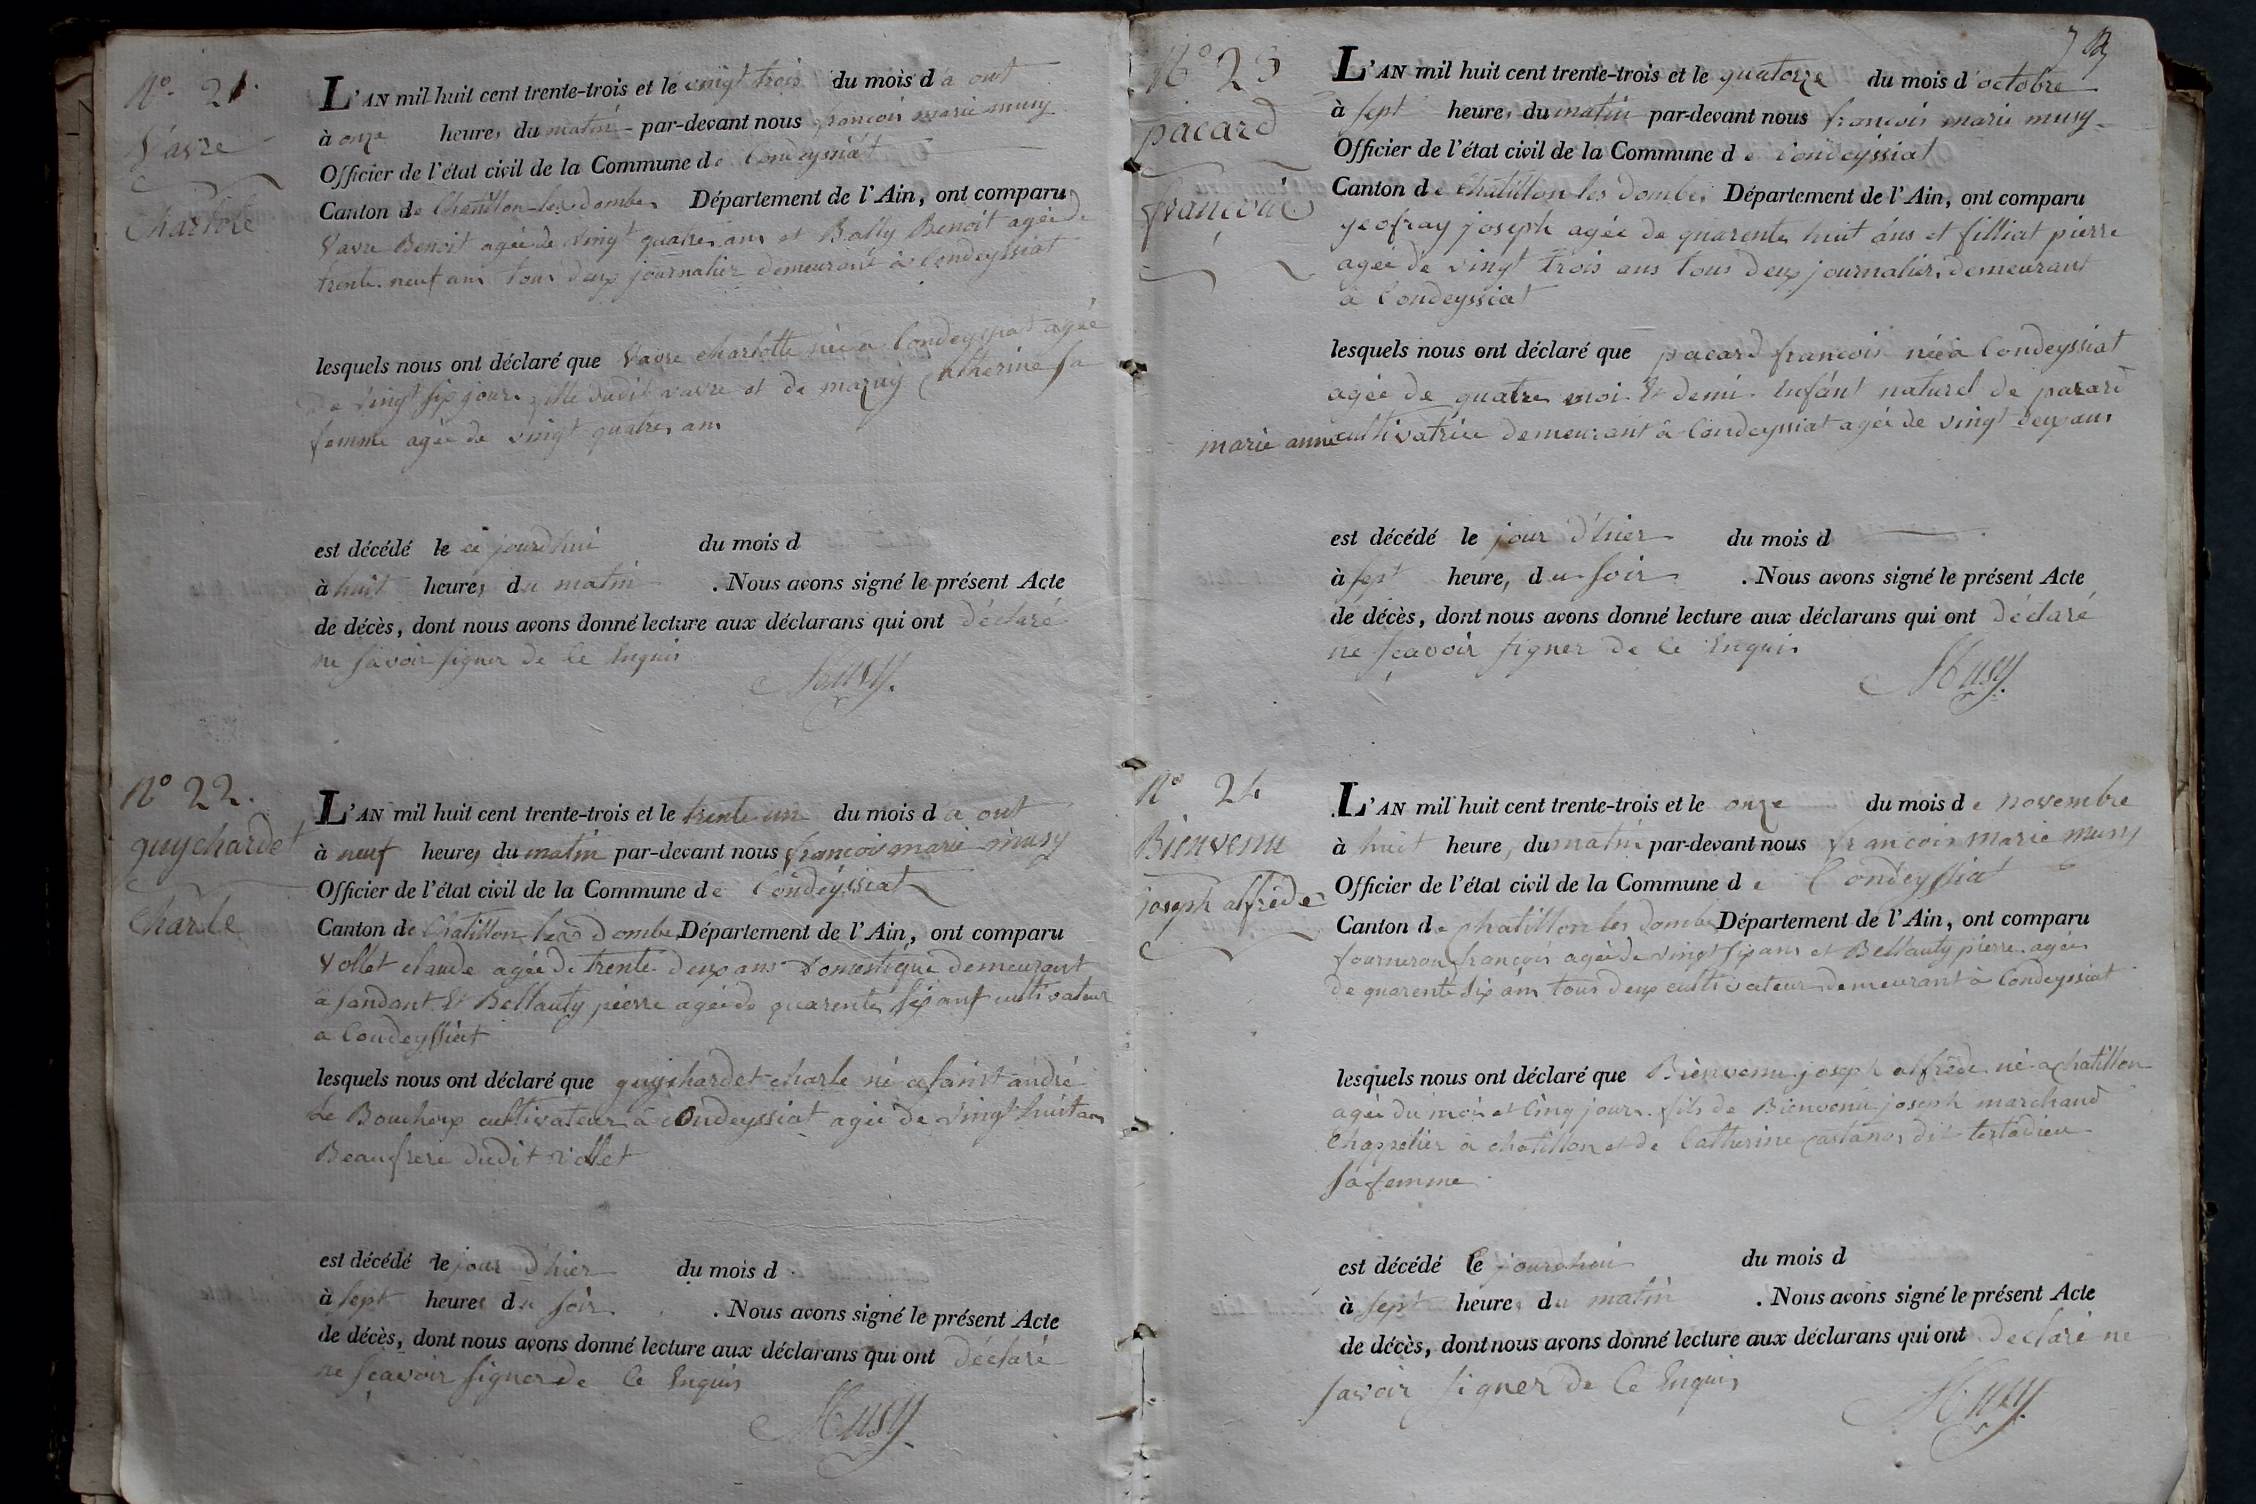 N° 21.
Vavre
Charlote
L'AN mil huit cent trente-trois et le vingt trois du mois d a out
à onze heures du matin par-devant nous francois marie musy
Officier de l'état civil de la Commune de Condeyssiat
Canton de Chatillon les dombes Département de l'Ain, ont comparu
Vavre Benoit agée de vingt quatres ans et Bally Benoit agée de
trente neuf ans tous deux journalier demeurant à Condeyssiat
lesquels nous ont déclaré que Vavre charlotte née a Condeyssiat agée
de vingt six jours fille dudit vavre et de Catherine sa
femme agée de vingt quatres ans
est décédé le ce jourdhui du mois d
à huit heures du matin . Nous avons signé le présent Acte
de décès, dont nous avons donné lecture aux déclarans qui ont déclaré
ne savoir signer de ce Enquis
Musy
N° 22.
guychardet
Charle
L'AN mil huit cent trente-trois et le trente un du mois d a out
à neuf heures du matin par-devant nous francois marie musy
Officier de l'état civil de la Commune de Condeyssiat
Canton de Chatillon les Dombes Département de l'Ain, ont comparu
Vollet claude agée de trente deux ans Domestique demeurant
à sandant Et Bellauty pierre agée de quarente six ans cultivateur
a Condeyssiat
lesquels nous ont déclaré que guychardet charle né a saint andré
Le Bouchoux cultivateur à condeyssiat agée de vingt huit ans
Beaufrere dudit vollet
est décédé le jour d'hier du mois d
à sept heures du soir . Nous avons signé le présent Acte
de décès, dont nous avons donné lecture aux déclarans qui ont déclaré
ne sçavoir signer de ce Enquis
Musy
N° 23
pacard
françois
L'AN mil huit cent trente-trois et le quatorze du mois d'octobre
à sept heures du matin par-devant nous francois marie musy
Officier de l'état civil de la Commune d e Condeyssiat
Canton de Chatillon les Dombes Département de l'Ain, ont comparu
geofray joseph agée de quarente huit ans et filliat pierre
agée de vingt trois ans tous deux journaliers demeurant
a Condeyssiat
lesquels nous ont déclaré que pacard francois née à Condeyssiat
agée de quatre moi Et demi Enfant naturel de pacard
marie anne cultivatrice demeurant à Condeyssiat agée de vingt deux ans
est décédé le jour d'hier du mois d
à sept heures du soir . Nous avons signé le présent Acte
de décès, dont nous avons donné lecture aux déclarans qui ont déclaré
ne sçavoir signer de ce Enquis
Musy
N° 24
Bienvenu
joseph alfrede
L'AN mil huit cent trente-trois et le onze du mois de novembre
à huit heures du matin par-devant nous francois marie musy
Officier de l'état civil de la Commune d e Condeyssiat
Canton de chatillon les dombes Département de l'Ain, ont comparu
fourneron françois agée de vingt six ans et Bellauty pierre agée
de quarente six ans tous deux cultivateur demeurant à Condeyssiat
lesquels nous ont déclaré que Bienvenu joseph alfrede né a chatillon
agée du moi et cinq jours fils de Bienvenu joseph marchand
Chappelier à chatillon et de Catherine dit
sa femme
est décédé le jourdhui du mois d
à sept heures du matin . Nous avons signé le présent Acte
de décès, dont nous avons donné lecture aux déclarans qui ont déclaré ne
savoir signer de ce Enquis
Musy